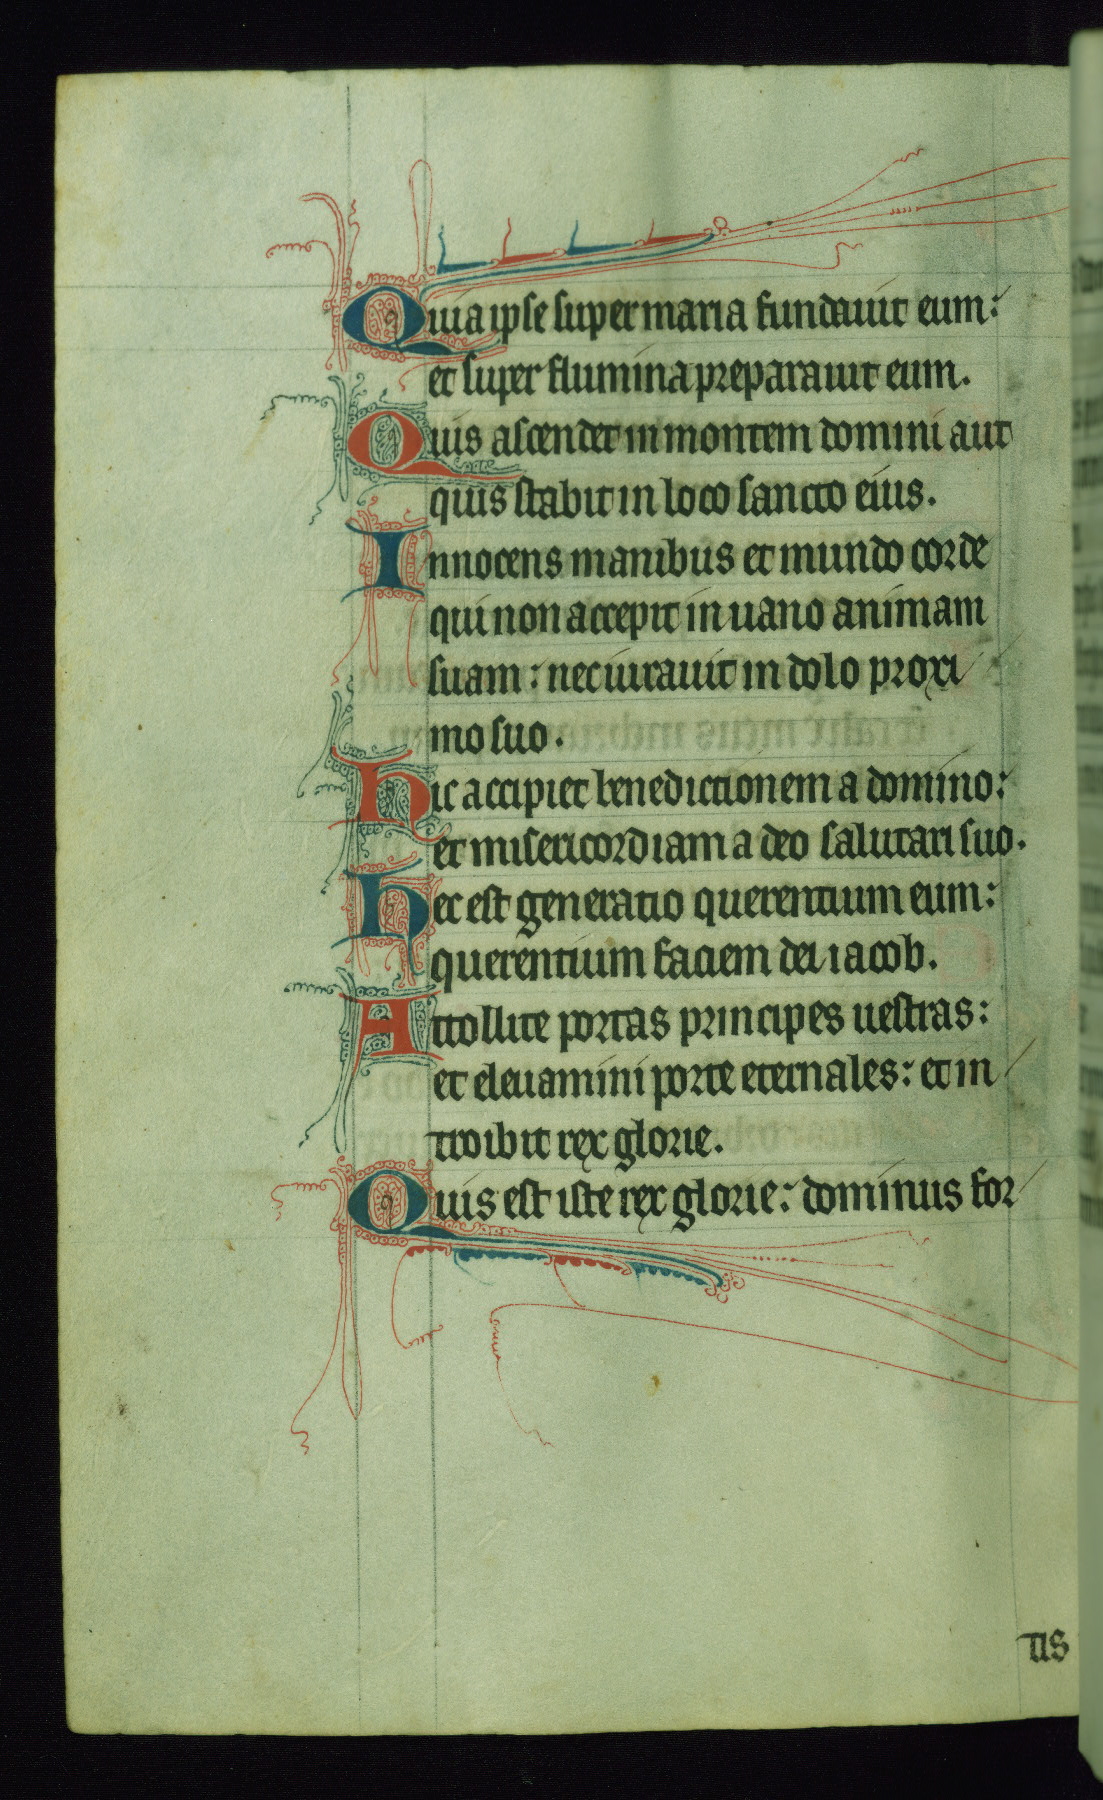 Quia ipse super maria fundauit eum:
et super flumina preparauit eum.
Quis ascendet in montem domini aut
quis stabit in loco sancto eius.
Innocens manibus et mundo corde
qui non accepit in uano animam
suam: nec iurauit in dolo proxi
mo suo.
hic accipiet benedictionem a domino:
et misericordiam a deo salutari suo.
hec est generatio querentium eum:
querentium faciem dei iacob.
Attollite portas principes uestras:
et eleuamini porte eternales: et in
troibit rex glorie.
Quis est iste rex glorie: dominus for
tis